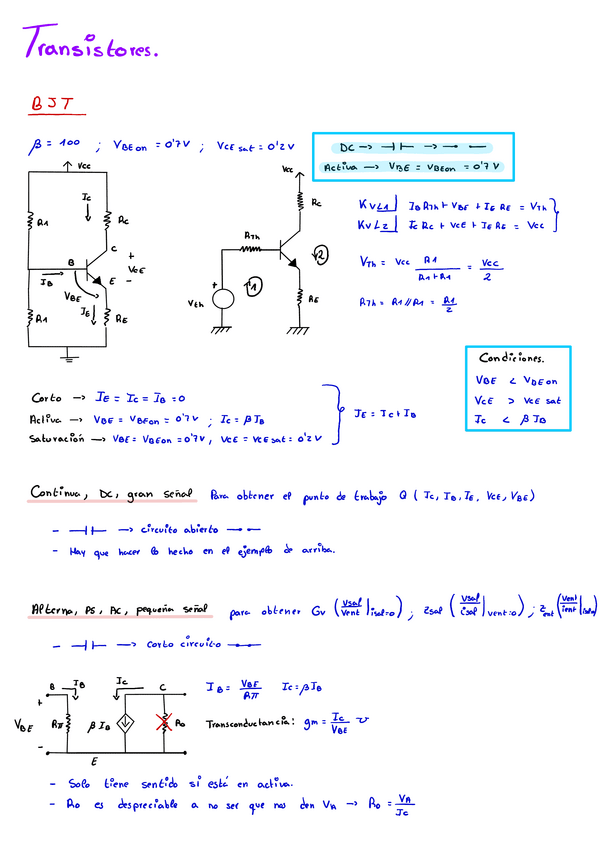 Transistores.
BJT
β = 100 ; VBEon = 0'7V ; VCE sat = 0'2V
DC → ⊣⊢ → • •
Activa → VBE = VBEon = 0'7V
Vcc
Ic
R1
Rc
C
B
+
VCE
-
E
IB
VBE
IE
R1
RE
Vcc
Rc
RTh
2
+
1
Vth
RE
KVL1 | IB RTh + VBE + IE RE = VTh
KVL2 | Ic Rc + VCE + IE RE = Vcc
VTh = Vcc R1/(R1+R1) = Vcc/2
RTh = R1//R1 = R1/2
Condiciones.
VBE < VBEon
VCE > VCE sat
Ic < β IB
Corto → IE = Ic = IB = 0
Activa → VBE = VBEon = 0'7V ; Ic = β IB
Saturación → VBE = VBEon = 0'7V, VCE = VCE sat = 0'2V
IE = Ic + IB
Continua, DC, gran señal Para obtener el punto de trabajo Q ( Ic, IB, IE, VCE, VBE)
- ⊣⊢ → circuito abierto • •
- Hay que hacer lo hecho en el ejemplo de arriba.
Alterna, PS, AC, pequeña señal para obtener Gv (vsal/vent | isal=0) ; Zsal (vsal/isal | vent=0) ; Zent (vent/ient | isal=0)
- ⊣⊢ → corto circuito •—•
B IB Ic C
+
VBE
-
Rπ
β IB
Ro
E
IB = VBE/Rπ Ic = β IB
Transconductancia: gm = Ic/VBE ʊ
- Solo tiene sentido si está en activa.
- Ro es despreciable a no ser que nos den VA → Ro = VA/Ic